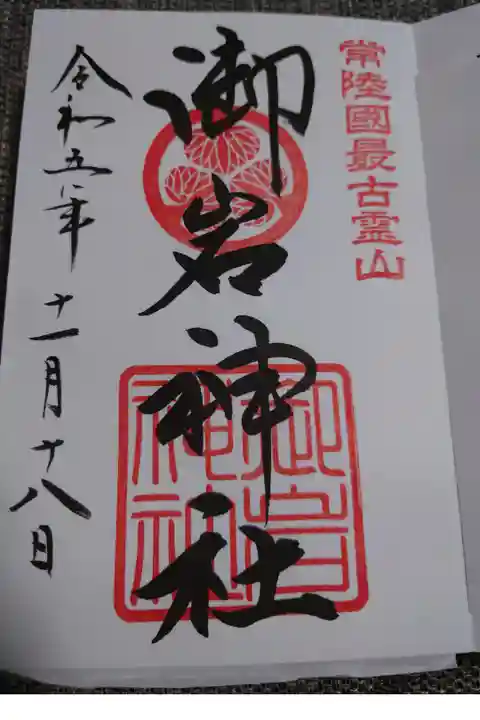 常陸國最古霊山
御岩神社
御岩神社
令和五年十一月十八日